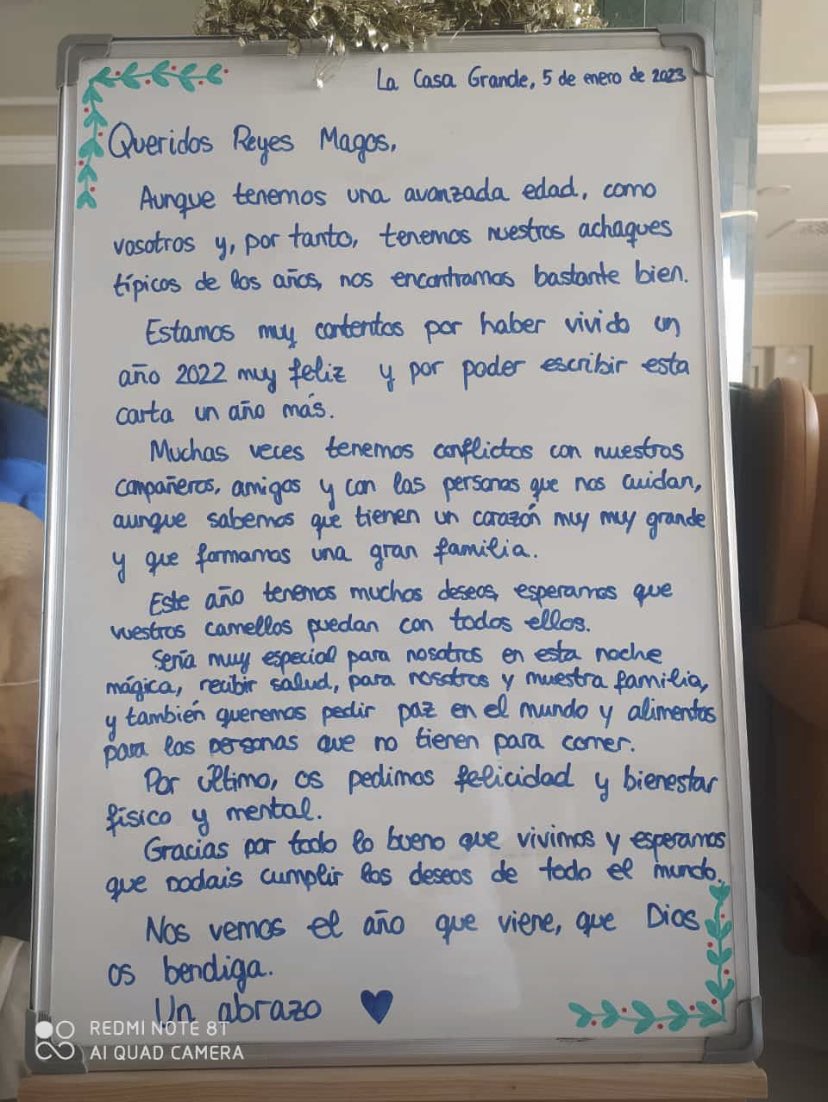 La Casa Grande, 5 de enero de 2023
Queridos Reyes Magos,
Aunque tenemos una avanzada edad, como
vosotros y, por tanto, tenemos nuestros achaques
típicos de los años, nos encontramos bastante bien.
Estamos muy contentos por haber vivido un
año 2022 muy feliz y por poder escribir esta
carta un año más.
Muchas veces tenemos conflictos con nuestros
compañeros, amigos y con las personas que nos cuidan,
aunque sabemos que tienen un corazón muy muy grande
y que formamos una gran familia.
Este año tenemos muchos deseos, esperamos que
vuestros camellos puedan con todos ellos.
Sería muy especial para nosotros en esta noche
mágica, recibir salud, para nosotros y nuestra familia,
y también queremos pedir paz en el mundo y alimentos
para las personas que no tienen para comer.
Por último, os pedimos felicidad y bienestar
físico y mental.
Gracias por todo lo bueno que vivimos y esperamos
que podais cumplir los deseos de todo el mundo.
Nos vemos el año que viene, que Dios
os bendiga.
Un abrazo
REDMI NOTE 8T
AI QUAD CAMERA